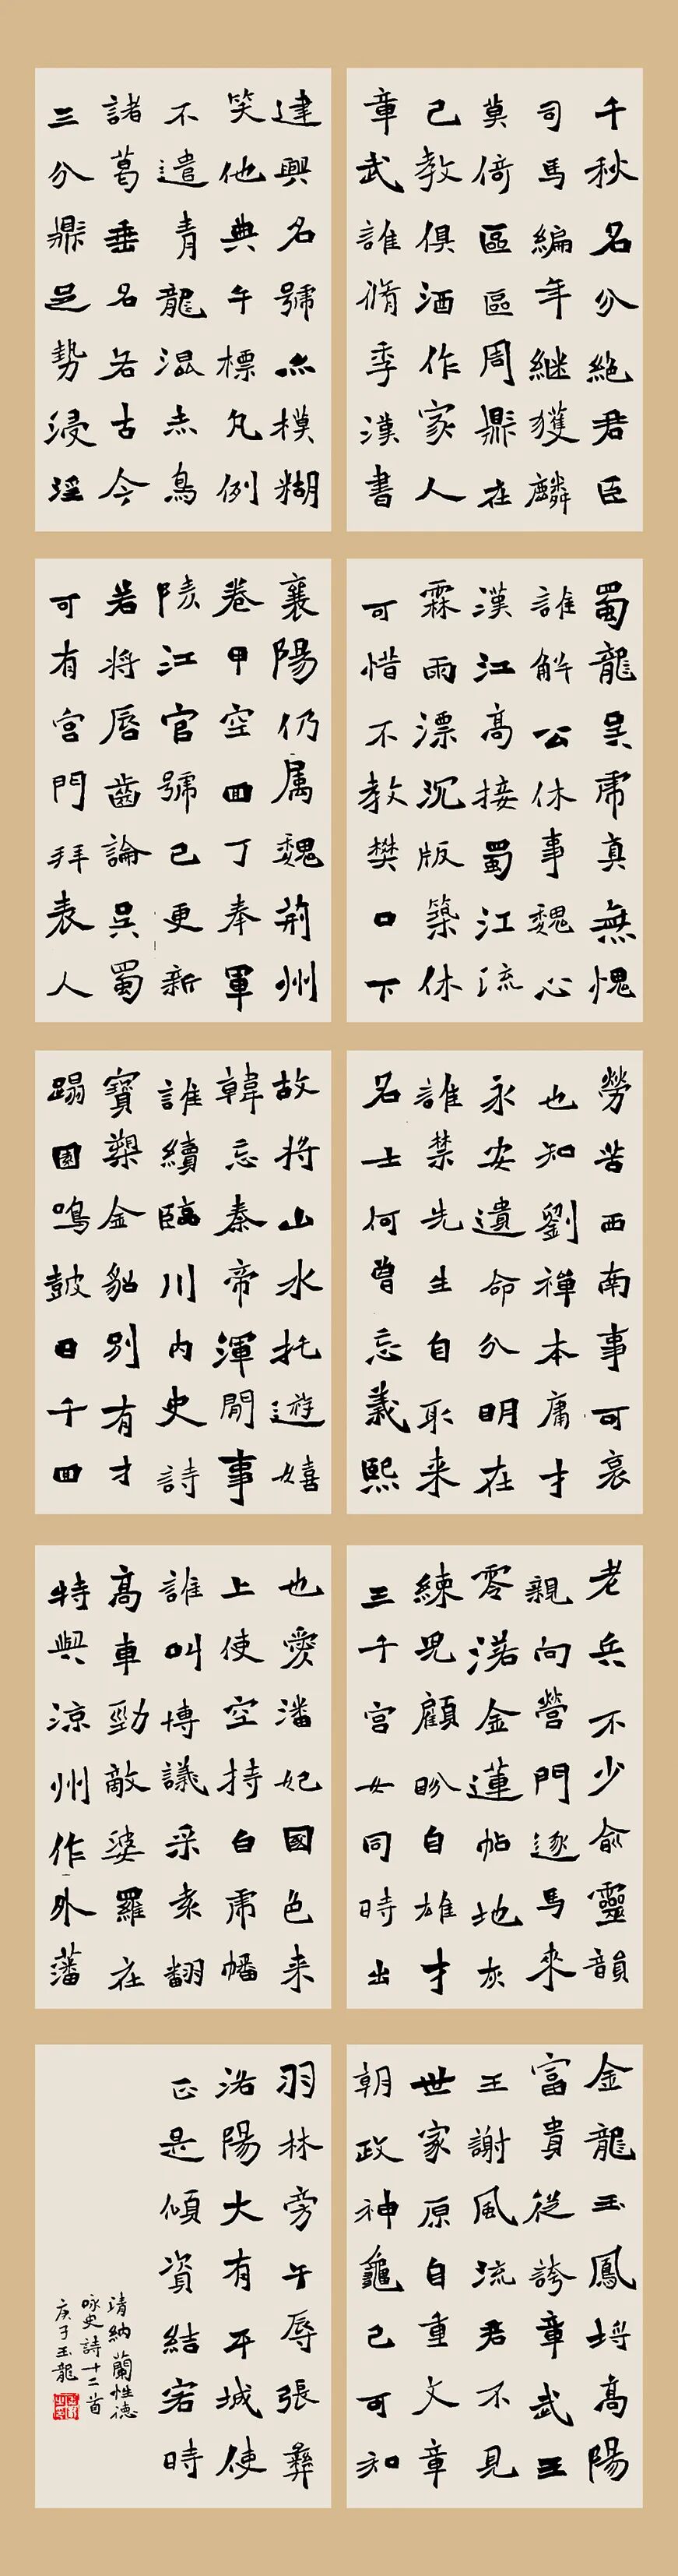 千秋名分絕君臣
司馬編年繼獲麟
莫倚區區周鼎在
已教俱酒作家人
章武誰脩季漢書
建興名號亦模糊
笑他典午標凡例
不遣青龍混赤烏
諸葛垂名各古今
三分鼎足勢浸淫
蜀龍吳虎真無愧
誰解公休事魏心
漢江高接蜀江流
霖雨漂沉版築休
可惜不教樊口下
襄陽仍属魏荊州
卷甲空回丁奉軍
陵江官號已更新
若將唇齒論吳蜀
可有宮門拜表人
勞苦西南事可哀
也知劉禪本庸才
永安遺命分明在
誰禁先生自取来
名士何曾忘義熙
故將山水托遊嬉
韓忘秦帝渾閒事
誰續臨川內史詩
寶槊金貂別有才
蹋圍鳴鼓日千回
老兵不少俞靈韻
親向營門逐馬來
零落金蓮帖地灰
練兒顧盼自雄才
三千宮女同時出
也愛潘妃國色来
上使空持白虎幡
誰叫博議采袁翻
高車勁敵婆羅在
特與涼州作外藩
金龍玉鳳埒高陽
富貴從誇章武王
王謝風流君不見
世家原自重文章
朝政神龜已可知
羽林旁午辱張彝
洛陽大有平城使
正是傾資結客時
清納蘭性德
咏史詩十二首
庚子玉龍